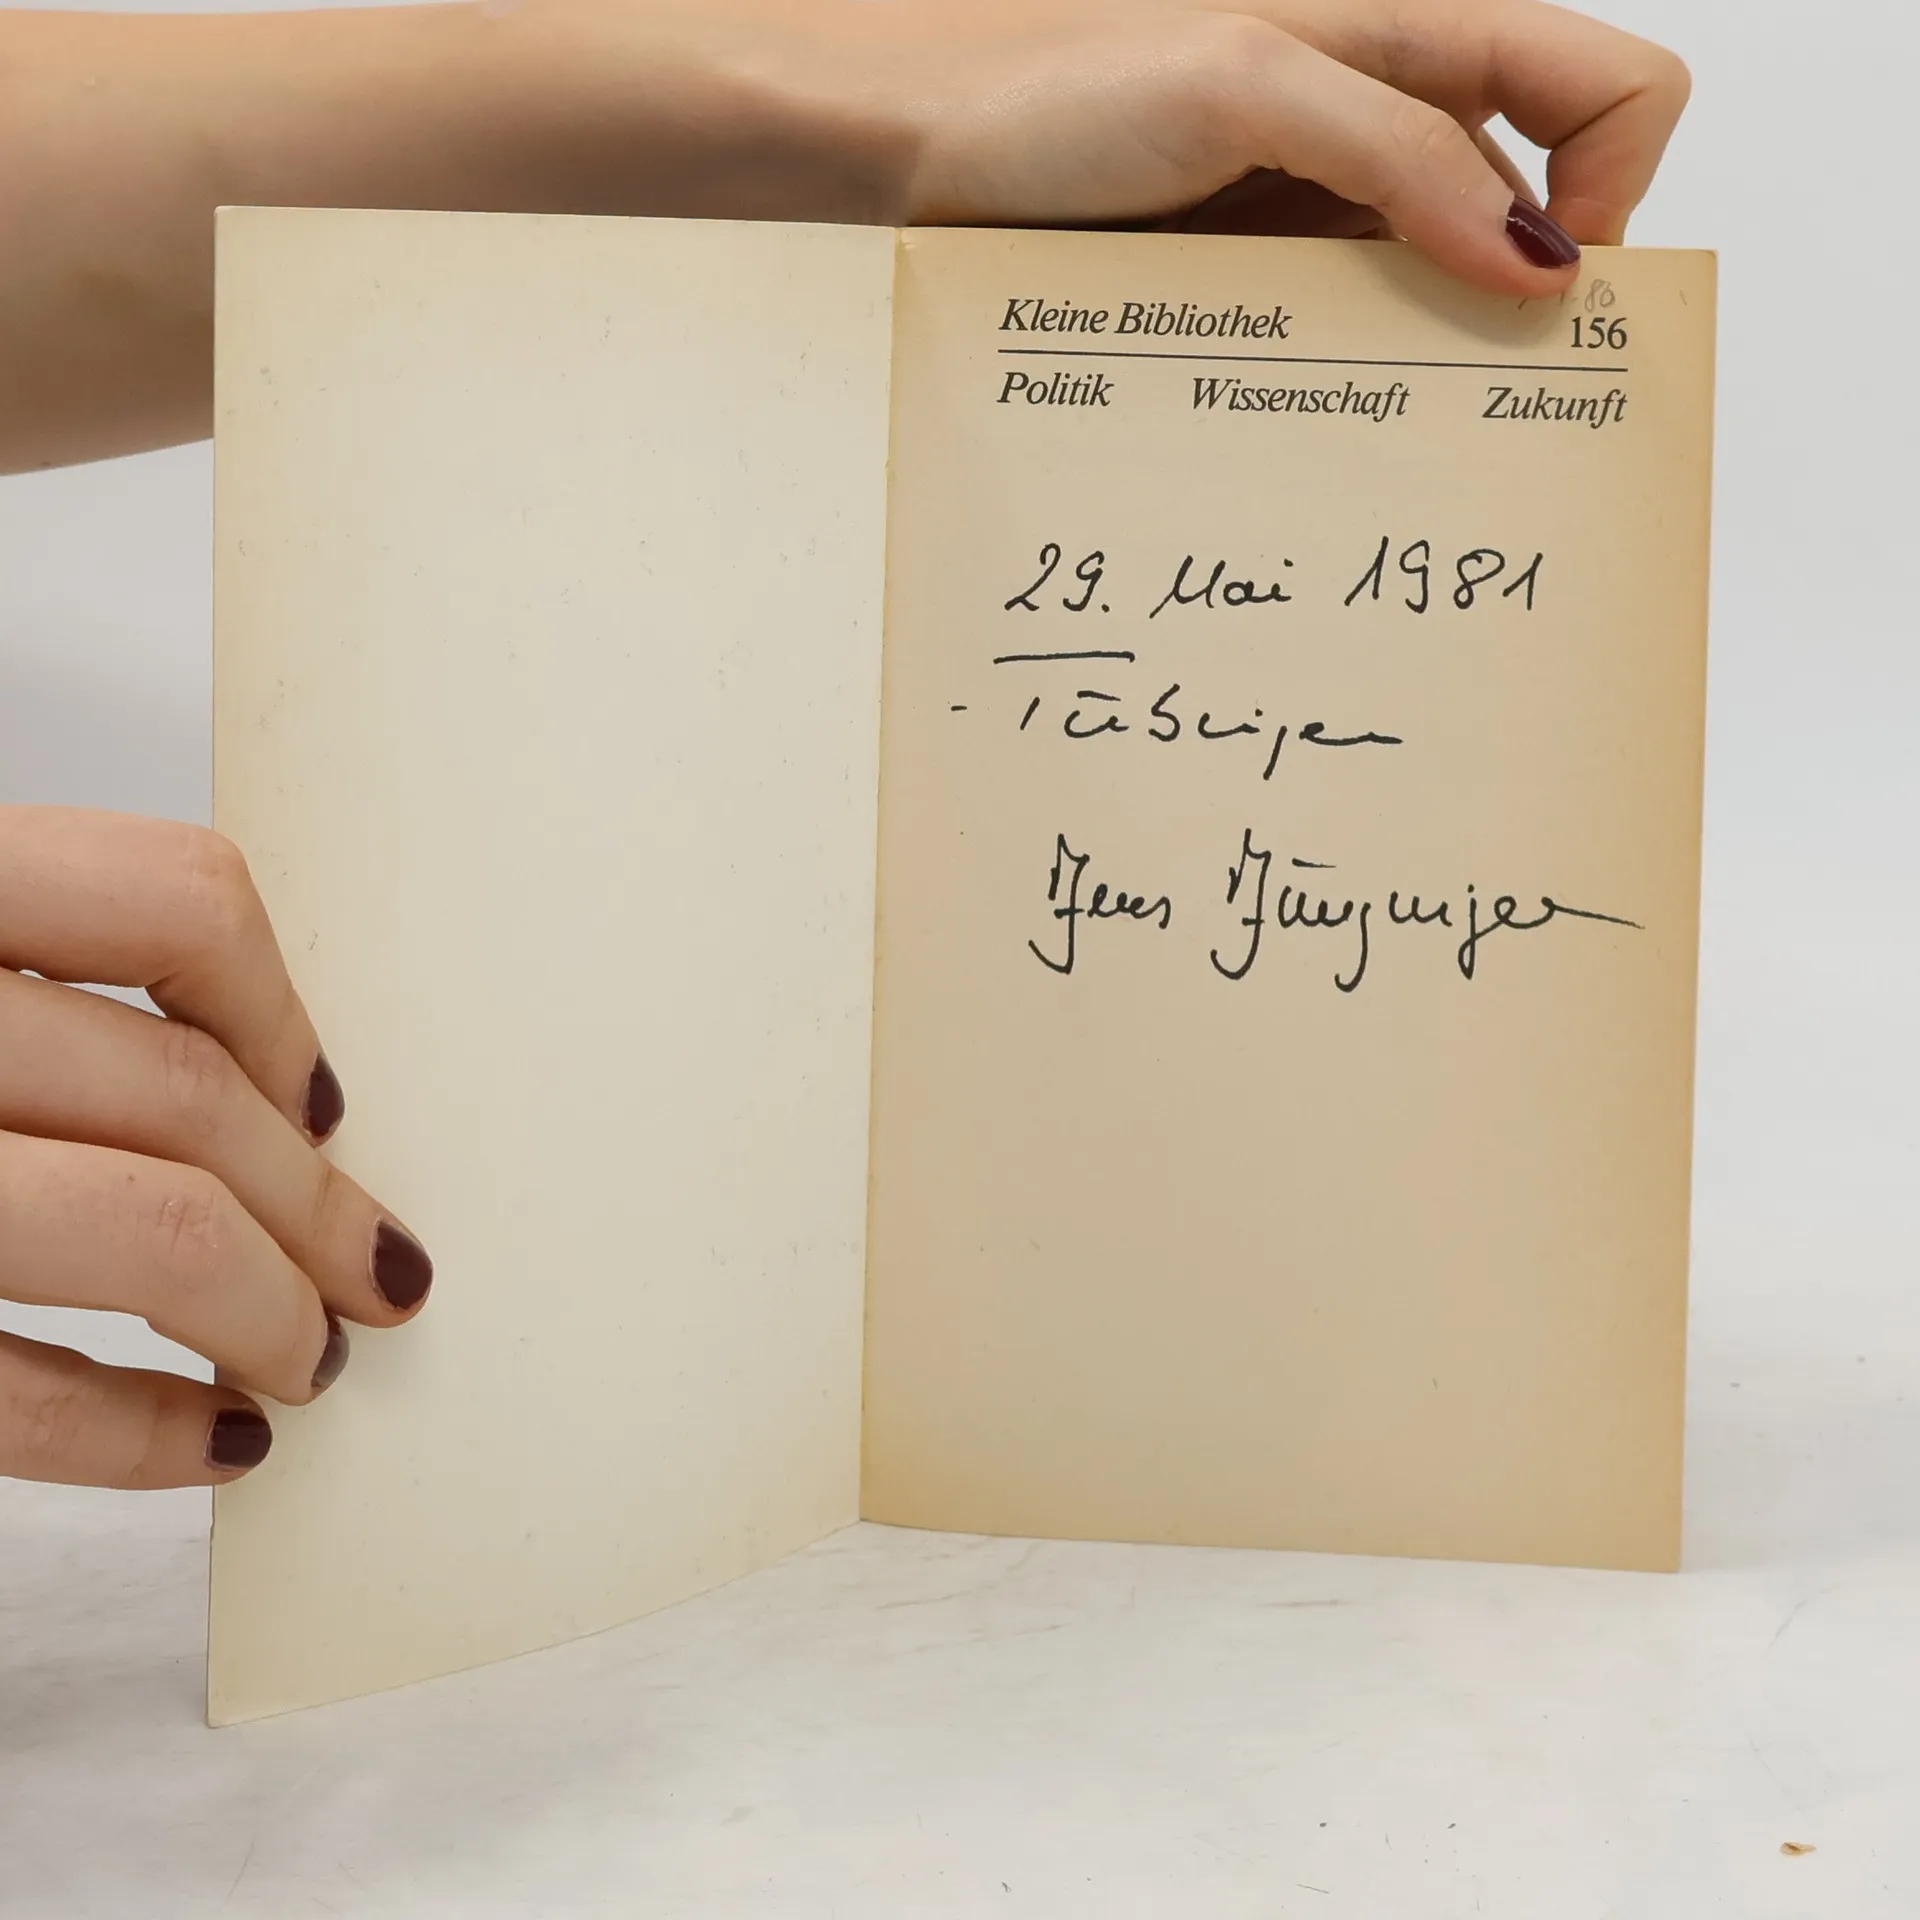 80
Kleine Bibliothek 156
Politik Wissenschaft Zukunft
29. Mai 1981
- Tübingen
Jens Jünginger